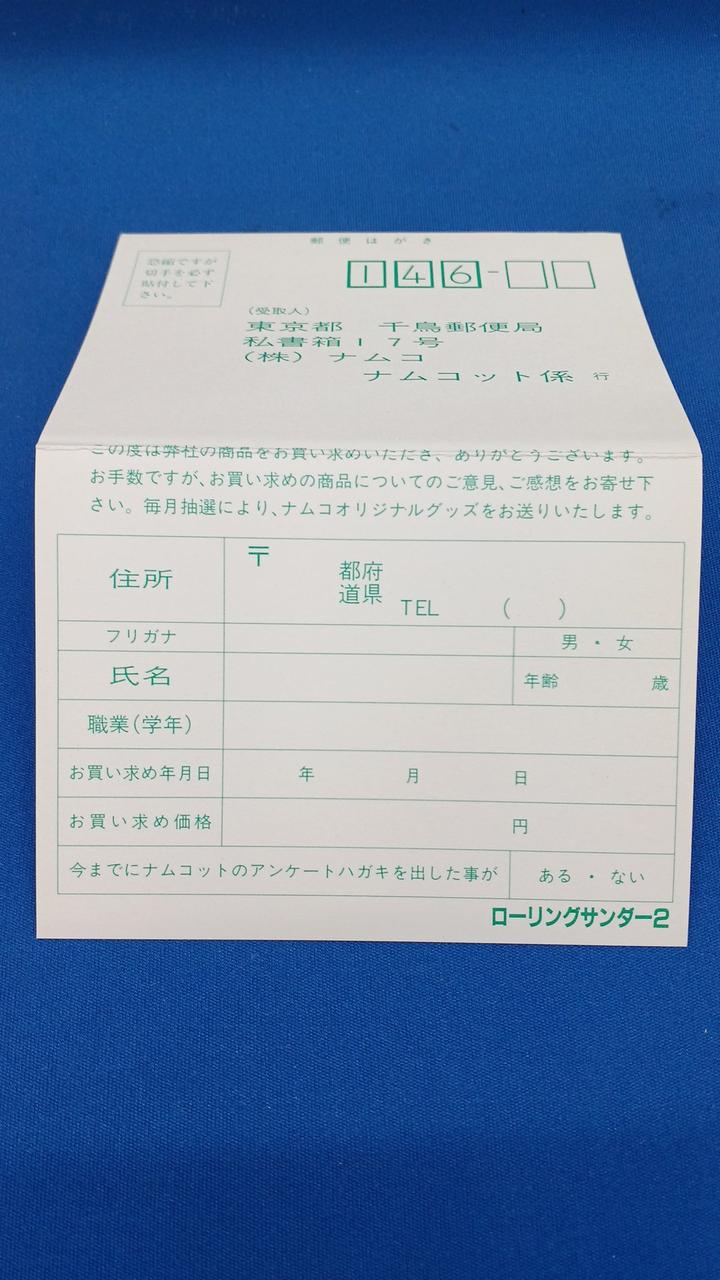 郵便はがき
恐縮ですが
切手を必ず
貼付して下
さい。
146-
(受取人)
東京都 千鳥郵便局
私書箱17号
(株)ナムコ
ナムコット係 行
この度は弊社の商品をお買い求めいただき、ありがとうございます。
お手数ですが、お買い求めの商品についてのご意見、ご感想をお寄せ下
さい。毎月抽選により、ナムコオリジナルグッズをお送りいたします。
住所 〒 都府
道県 TEL ( )
フリガナ 男・女
氏名 年齢 歳
職業(学年)
お買い求め年月日 年 月 日
お買い求め価格 円
今までにナムコットのアンケートハガキを出した事が ある・ない
ローリングサンダー2